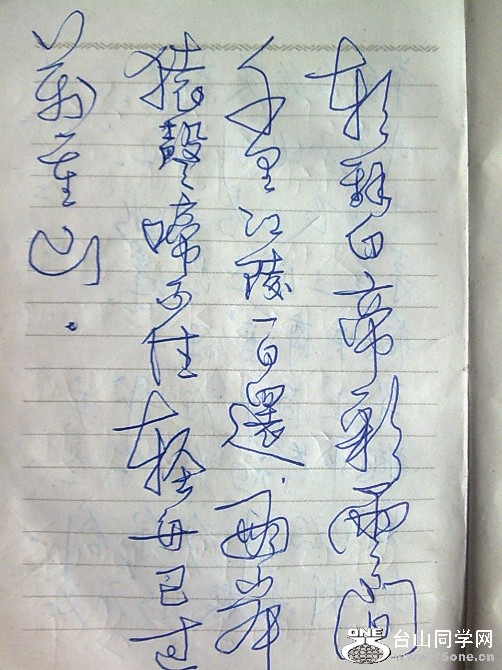 朝辞白帝彩雲间
千里江陵一日還.兩岸
猿聲啼不住輕舟已过
萬重山.
ONE 台山同学网
5one.cn